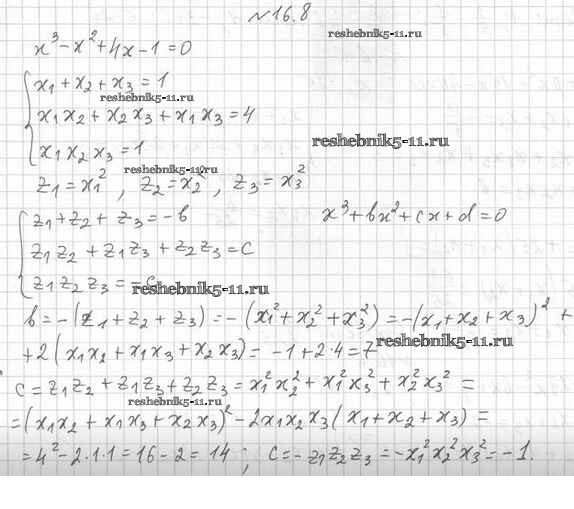 №16.8
reshebnik5-11.ru
x³ - x² + 4x - 1 = 0
x₁ + x₂ + x₃ = 1
reshebnik5-11.ru
x₁x₂ + x₂x₃ + x₁x₃ = 4
reshebnik5-11.ru
x₁x₂x₃ = 1
reshebnik5-11.ru
z₁ = x₁², z₂ = x₂², z₃ = x₃²
z₁ + z₂ + z₃ = -b x³ + bx² + cx + d = 0
z₁z₂ + z₁z₃ + z₂z₃ = c
z₁z₂z₃ = - c
reshebnik5-11.ru
b = -(z₁ + z₂ + z₃) = -(x₁² + x₂² + x₃²) = -(x₁ + x₂ + x₃)² +
+ 2(x₁x₂ + x₁x₃ + x₂x₃) = -1 + 2·4 = 7
reshebnik5-11.ru
c = z₁z₂ + z₁z₃ + z₂z₃ = x₁²x₂² + x₁²x₃² + x₂²x₃² =
reshebnik5-11.ru
= (x₁x₂ + x₁x₃ + x₂x₃)² - 2x₁x₂x₃(x₁ + x₂ + x₃) =
= 4² - 2·1·1 = 16 - 2 = 14; c = - z₁z₂z₃ = -x₁²x₂²x₃² = -1.